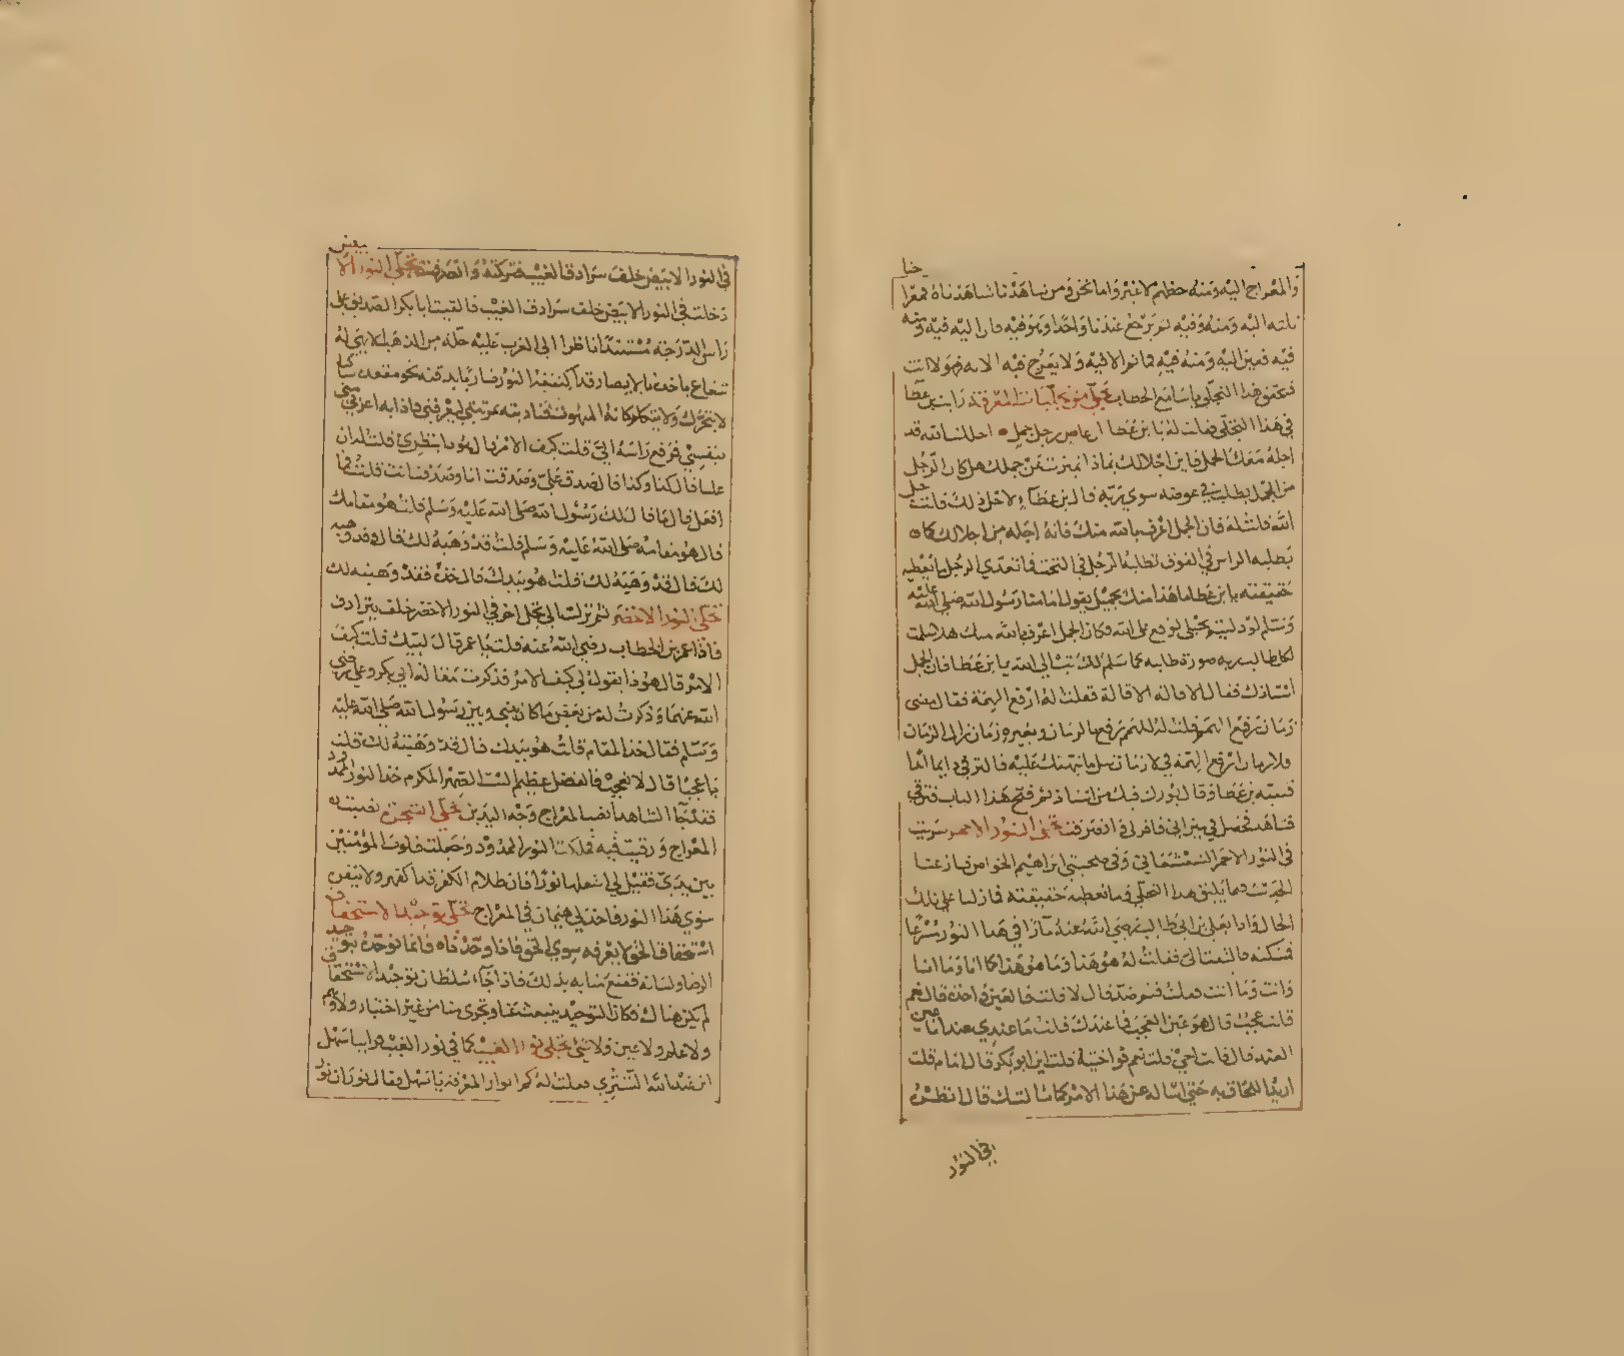 والمعراج اليه ومنه حظهم لا غير واما نحن ومن شاهدنا شاهدناه فمعراجنا
اليه ومنه وفيه ثم يرجع عندنا واحدا وهو فيه فان اليه فيه ومنه
فيه فعين اليه ومنه فيه فما ثم الا فيه ولا يعرج فيه الا به فهو لا انت
فتحقق هذا التجلي يا سامع الخطاب تجلي من تجليات المعرفة رايت بن عطا
في هذا التجلي فقلت له يا بن عطا ان غاص رجل جمل اجل الله قد
اجله معك الجمل فاين اجلالك بماذا تميزت عن جملك هل كان الرجل
من الجمل يطلب في غوصه سوى ربه قال بن عطا ولاجل ذلك قلت جل
الله فقلت له فان الجمل اعرف بالله منك فانه اجله من اجلالك كان
يطلبه الراس في الفوق تطلبه الرجل في التحت فما تعدى الرجل ما تعطيه
حقيقته يا بن عطا ما هذا منك بجميل يقول امامنا رسول الله صلى الله عليه
وسلم لو دليتم بحبل لوقع على الله فكان الجمل اعرف بالله منك هلا سلمت
لكل طالب ربه صورة طلبه كما سلم لك تب الى الله يا بن عطا فان الجمل
استاذك فقال الاقالة الاقالة فقلت له ارفع الهمة فقال مضى
زمان ترفع الهمم قلت له للهمم رفع بالزمان وبغير زمان زال الزمان
فلا زمان ارفع الهمة في لا زمان تنل ما نبهتك عليه فالترقي دايما ابدا
فتنبه بن عطا وقال بورك فيك من استاذ ثم فتح هذا الباب فترقى
فشاهد فحصل في ميزاني فاقر لي وانصرفت تجلي النور الاحمر سريت
في النور الاحمر الشعشعاني وفي صحبتي ابراهيم الخواص فتنازعنا
الحديث فيما يليق بهذا التجلي وما تعطيه حقيقته فما زلنا على تلك
الحال واذا بعلي بن ابي طالب رضي الله عنه مارا في هذا النور مسرعا
فمسكته فالتفت الي فقلت له هو هذا فقال هو هذا وما هو هذا كما انا وما انا
وانت وما انت فقلت فثم ضد قال لا قلت فالعين واحدة قال نعم
قلت عجب قال هو عين العجب فما عندك قلت ما عندي عند انا عين
العند قال فانت اخي قلت نعم فواخيته قلت اين ابو بكر قال امام قلت
اريد اللحاق به حتى اساله عن هذا الامر كما سالتك قال انظره
في النور
في النور الابيض خلف سرادق الغيب فتركته وانصرفت تجلي النور الابيض
دخلت في النور الابيض خلف سرادق الغيب فالفيت ابا بكر الصديق على
راس الدرجة مستندا ناظرا الى الغرب عليه حلة من الذهب الابهى له
شعاع ياخذ بالابصار قد اكتنفه النور ضاربا بذقنه نحو مقعده ساكنا
لا يتحرك ولا يتكلم كانه المبهوت فناديته بمرتبتي ليعرفني فاذا به اعرف بي مني
بنفسي فرفع راسه الي قلت كيف الامر قال هو ذا ينظرني قلت له ان
عليا قال كذا وكذا قال صدق علي وصدقت انا وصدقت انت قلت فما
افعل قال ما قال لك رسول الله صلى الله عليه وسلم قلت هو مقامك
قال هو مقامه صلى الله عليه وسلم قلت قد وهبه لك قال وقد وهبه
لك قال قد وهبه لك قلت هو بيدك قال خذه فقد وهبته لك
تجلي النور الاخضر ثم نزلت الى تجل اخر في النور الاخضر خلف سرادق
فاذا عمر بن الخطاب رضي الله عنه فقلت يا عمر قال لبيك قلت كيف
الامر قال هو ذا يقول لي كيف الامر فذكرت مقالة ابي بكر وعلي رضي
الله عنهما وذكرت له من بعض ما كان بيني وبين رسول الله صلى الله عليه
وسلم فقال خذ المقام قلت هو بيدك قال قد وهبته لك قلت
يا عجبا قال لا تعجب فالفضل عظيم الست الصهر المكرم خذ النور الممدود
تجلي الشجرة نصبت
المعراج ورقيت فيه فملكت النور الممدود وجعلت قلوب المؤمنين
بين يدي فقيل لي اشعلها نورا فان ظلام الكفر قد اكفهر ولا ينفره
سوى هذا النور فاخذني هيمان في المعراج تجلي توحيد الاستحقاق
استحقاق الحق لا يعرفه سوى الحق فاذا وحدناه فانما نوحده بتوحيد
الرضا ولسانه فقنع منا به بذلك فاذا جاء سلطان توحيد الاستحقاق
لم يكن هناك فكان التوحيد ينبعث عنا ويجري منا من غير اختيار ولا هم
ولا علم ولا عين ولا شي تجلي نور الغيب كنا في نور الغيب فراينا سهل
ابن عبد الله التستري فقلت له كم انوار المعرفة يا سهل فقال نوران نور